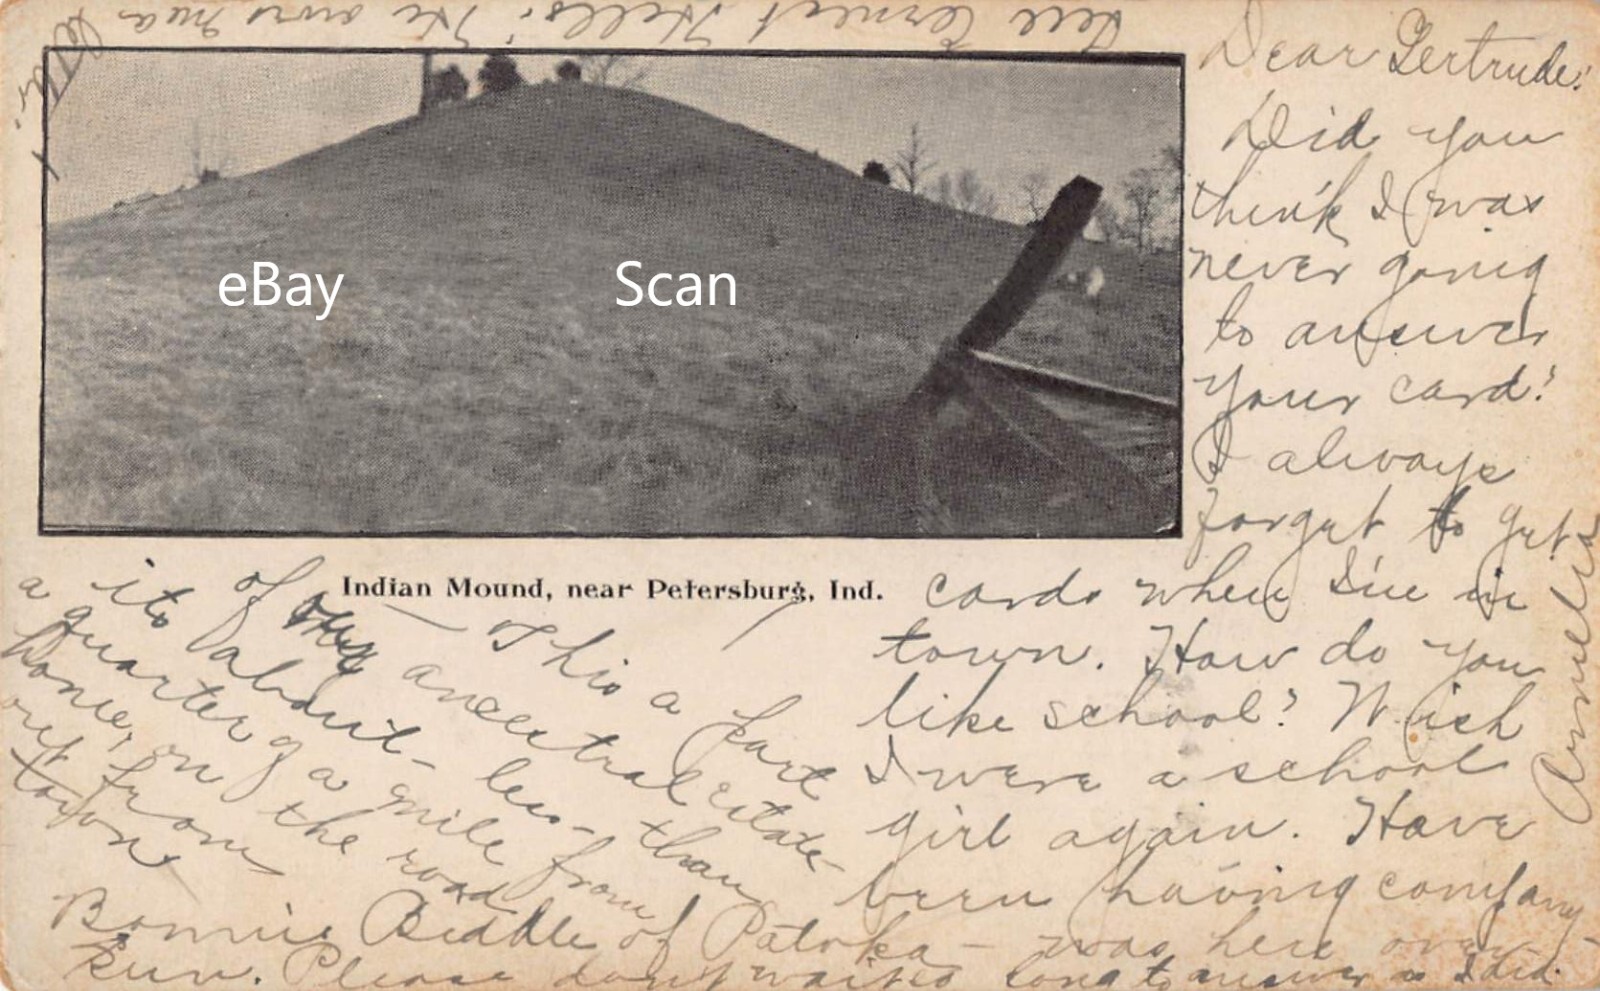 Dear Gertrude:
Did you
think I was
never going
to answer
your card?
I always
forget to get
cards when I'm in
town. How do you
like school? Wish
I were a school
girl again. Have
been having company—
Bonnie Biddle of Patoka — was here over
Sun. Please don't wait so long to answer as I did.
Amelia
eBay Scan
Indian Mound, near Petersburg, Ind.
This a part
of our ancestral estate
its about less than
a quarter of a mile from
home, on the road
out from
town
Tell Ernest Hello!